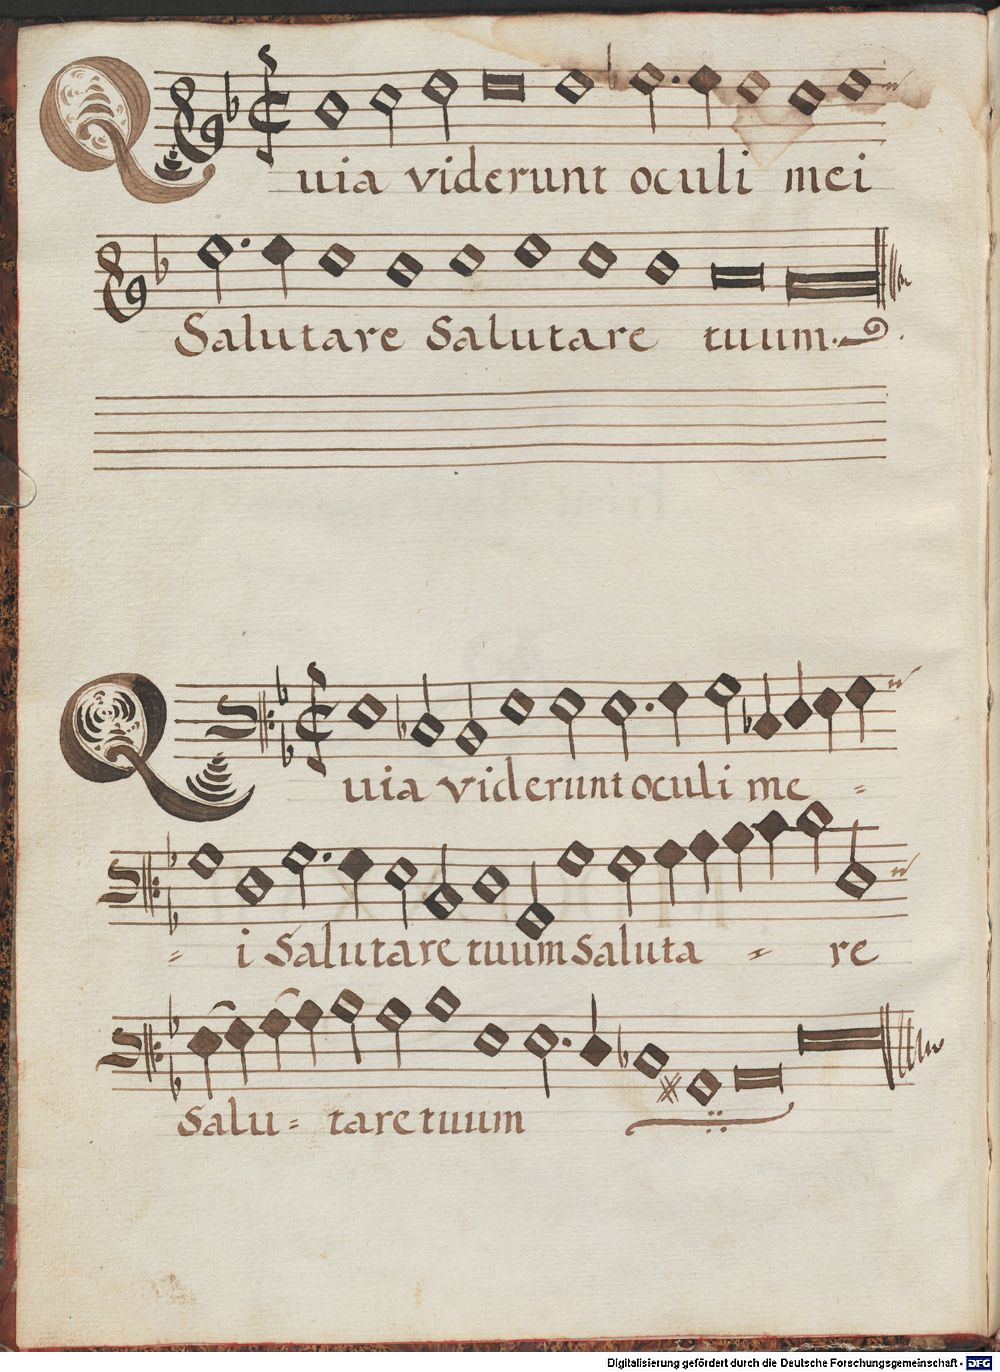 Quia viderunt oculi mei
Salutare Salutare tuum.
Quia viderunt oculi me =
= i Salutare tuum Saluta = re
Salu= tare tuum
Digitalisierung gefördert durch die Deutsche Forschungsgemeinschaft - DFG